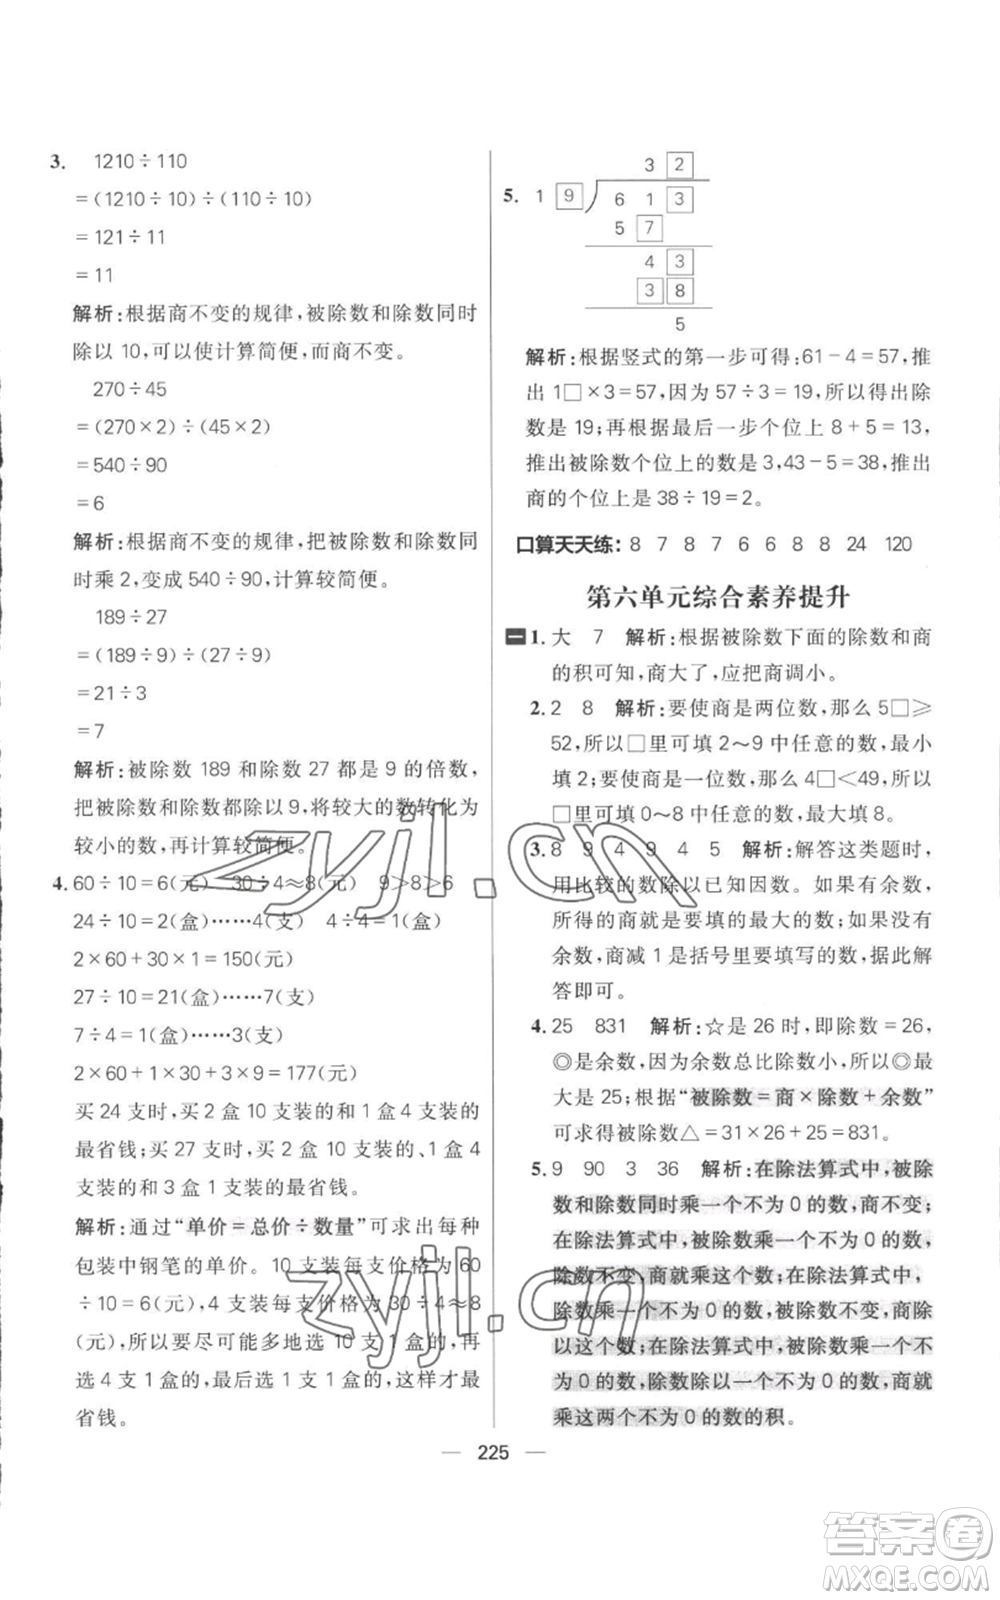 3. 1210÷110
=(1210÷10)÷(110÷10)
=121÷11
=11
解析:根据商不变的规律,被除数和除数同时
除以10,可以使计算简便,而商不变。
270÷45
=(270×2)÷(45×2)
=540÷90
=6
解析:根据商不变的规律,把被除数和除数同
时乘2,变成540÷90,计算较简便。
189÷27
=(189÷9)÷(27÷9)
=21÷3
=7
解析:被除数189和除数27都是9的倍数,
把被除数和除数都除以9,将较大的数转化为
较小的数,再计算较简便。
4. 60÷10=6(元) 30÷4≈8(元) 9>8>6
24÷10=2(盒)……4(支) 4÷4=1(盒)
2×60+30×1=150(元)
27÷10=21(盒)……7(支)
7÷4=1(盒)……3(支)
2×60+1×30+3×9=177(元)
买24支时,买2盒10支装的和1盒4支装的
最省钱;买27支时,买2盒10支装的、1盒4
支装的和3盒1支装的最省钱。
解析:通过“单价=总价÷数量”可求出每种
包装中钢笔的单价。10支装每支价格为60
÷10=6(元),4支装每支价格为30÷4≈8
(元),所以要尽可能多地选10支1盒的,再
选4支1盒的,最后选1支1盒的,这样才最
省钱。
3 2
5. 1 9 6 1 3
5 7
4 3
3 8
5
解析:根据竖式的第一步可得:61-4=57,推
出1□×3=57,因为57÷3=19,所以得出除
数是19;再根据最后一步个位上8+5=13,
推出被除数个位上的数是3,43-5=38,推出
商的个位上是38÷19=2。
口算天天练: 8 7 8 7 6 6 8 8 24 120
第六单元综合素养提升
一 1. 大 7 解析:根据被除数下面的除数和商
的积可知,商大了,应把商调小。
2. 2 8 解析:要使商是两位数,那么5□≥
52,所以□里可填2~9中任意的数,最小
填2;要使商是一位数,那么4□<49,所以
□里可填0~8中任意的数,最大填8。
3. 8 9 4 9 4 5 解析:解答这类题时,
用比较的数除以已知因数。如果有余数,
所得的商就是要填的最大的数;如果没有
余数,商减1是括号里要填写的数,据此解
答即可。
4. 25 831 解析:☆是26时,即除数=26,
◎是余数,因为余数总比除数小,所以◎最
大是25;根据“被除数=商×除数+余数”
可求得被除数△=31×26+25=831。
5. 9 90 3 36 解析:在除法算式中,被除
数和除数同时乘一个不为0的数,商不变;
在除法算式中,被除数乘一个不为0的数,
除数不变,商就乘这个数;在除法算式中,
除数乘一个不为0的数,被除数不变,商除
以这个数;在除法算式中,被除数乘一个不
为0的数,除数除以一个不为0的数,商就
乘这两个不为0的数的积。
225
zyjl.cn
zyjl.cn
答案圈
MXQE.COM